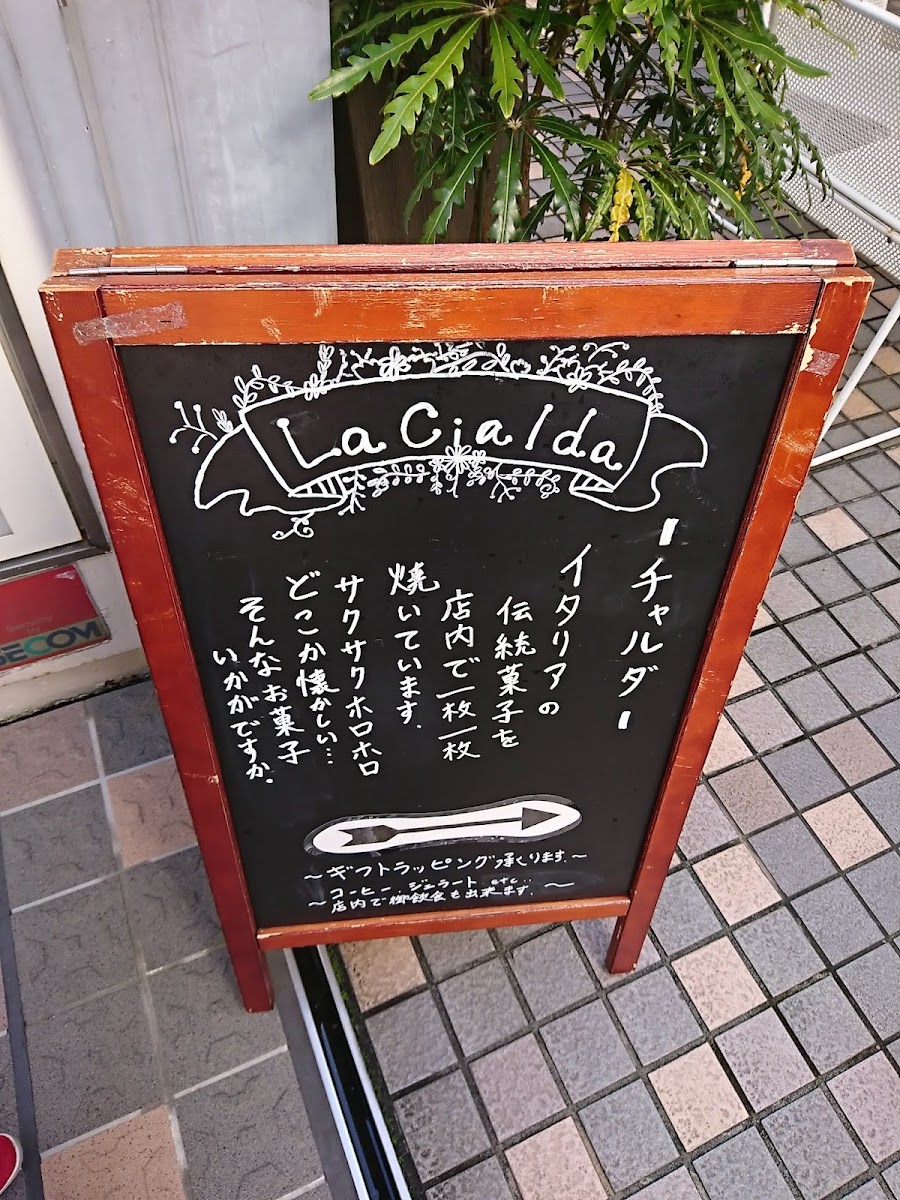 La Cialda
ーチャルダー
イタリアの
伝統菓子を
店内で一枚一枚
焼いています.
サクサクホロホロ
どこか懐かしい…
そんなお菓子
いかがですか.
～ギフトラッピング承ります.～
コーヒー.ジェラート etc..
～店内で御飲食も出来ます.～
SECOM